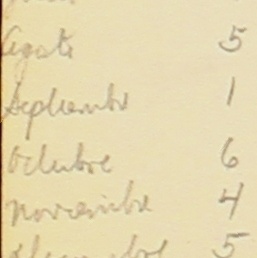 Agosto 5
Septiembre 1
Octubre 6
Noviembre 4
Diciembre 5